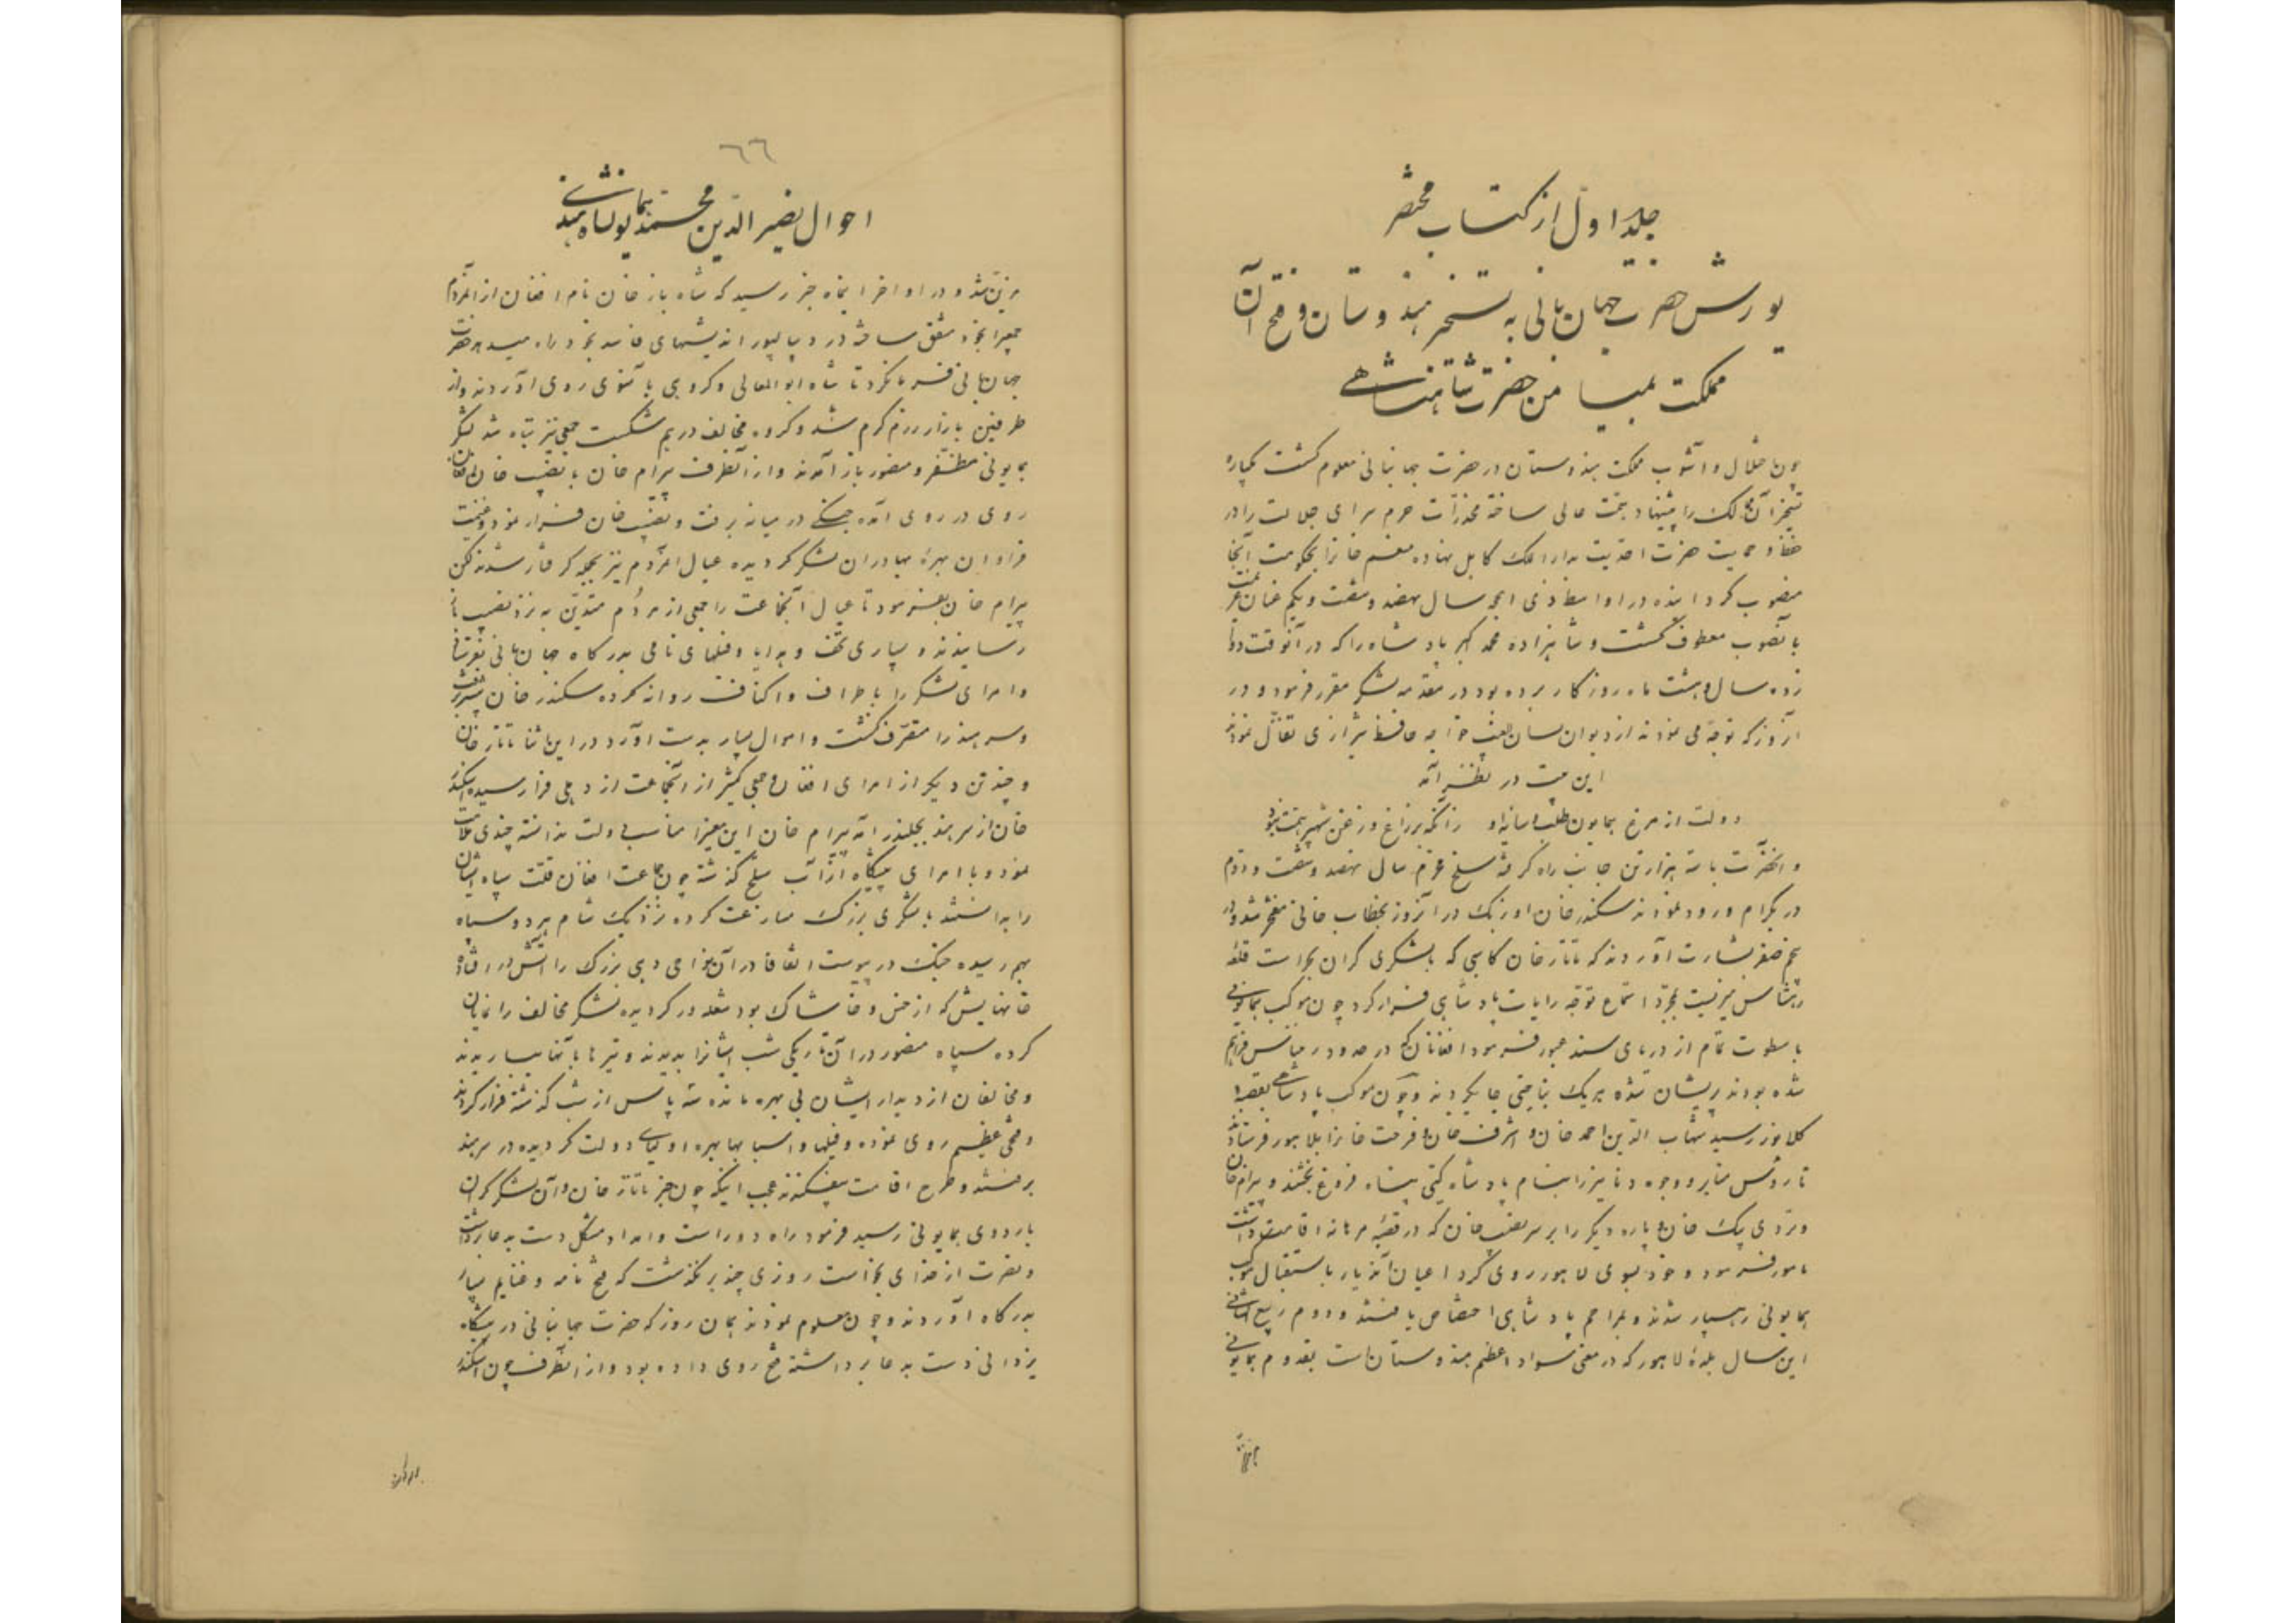 جلد اول از کتاب مختصر
یورش حضرت جهان بانی به تسخیر هندوستان و فتح آن
مملکت بمیامن حضرت شاهنشاهی
چون اختلال و آشوب مملکت هندوستان در حضرت جهانبانی معلوم گشت یکباره
تسخیر آن ممالک را پیشنهاد همت عالی ساخته مخدرات حرم سرای جلالت را در
حفظ و حمایت حضرت احدیت بدارالملک کابل نهاده منعم خانرا بحکومت آنجا
منصوب گردانیده در اواسط ذی الحجه سال نهصد و شصت و یکم عنان عزیمت
بآنصوب معطوف گشت و شاهزاده محمد اکبر پادشاه را که در آنوقت دوا
زده سال و هشت ماه روزگار برده بود در مقدمه لشکر مقرر فرمود و در
آنروز که توجه می نمودند از دیوان لسان الغیب خواجه حافظ شیرازی تفأل نمودند
این بیت در نظر آمد
دولت از مرغ همایون طلب و سایه او زانکه با زاغ و زغن شهپر همت نبود
و آنحضرت با سه هزار تن جانب راه گرفته سلخ محرم سال نهصد و شصت و دوم
در بکرام ورود نمودند سکندر خان اوزبک در آنروز بخطاب خانی مفتخر شد و در
پنجم صفر بشارت آوردند که تاتار خان کاسی که با لشکری گران بحراست قلعه
رهتاس میزیست بمجرد استماع توجه رایات پادشاهی فرار کرد چون موکب همایونی
با سطوت تمام از دریای سند عبور فرمود افغانان که در حدود رهتاس فراهم
شده بودند پریشان شده هر یک بناحیتی جایگیر دند و چون موکب پادشاهی بقصبه
کلانور رسید شهاب الدین احمد خان و اشرف خان و فرحت خانرا بلاهور فرستادند
تا رؤس منابر و وجوه دنانیر را بنام پادشاه گیتی پناه فروغ بخشند و بیرام خان
و تردی بیک خان و پاره دیگر را بر سر نصیب خان که در قصبه هرهانه اقامت داشت
مامور فرمود و خود بسوی لاهور روی کرد اعیان آندیار باستقبال موکب
همایونی رهسپار شدند و بمراحم پادشاهی اختصاص یافتند و دوم ربیع الثانی
این سال بلده لاهور که در معنی سواد اعظم هندوستان است بقدوم همایونی
٦٦
احوال نصیر الدین محمد همایون پادشاه هند
مزین شد و در اواخر اینماه خبر رسید که شاه باز خان نام افغان از آنمردم
جمعی را بخود متفق ساخته در دیپالپور اندیشهای فاسد بخود راه میدهد حضرت
جهان بانی فرمان کرد تا شاه ابوالمعالی و گروهی با نسوی روی آوردند و از
طرفین بازار رزم گرم شد و گروه مخالف در هم شکست جمعی نیز تباه شد لشکر
همایونی مظفر و منصور باز آمدند و از آنطرف بیرام خان با نصیب خان افغان
روی در روی آمده جنگی در میانه برفت و نصیب خان فرار نمود و غنیمت
فراوان بهره بهادران لشکر گردیده عیال آنمردم نیز بجمله گرفتار شدند لکن
بیرام خان بفرمود تا عیال آنجماعت را جمعی از مردم متدین به نزد نصیب خان
رسانیدند و بسیاری تحف و هدایا و فیلهای نامی بدرگاه جهان بانی بفرستاد
و امرای لشکر را باطراف و اکناف روانه کرده سکندر خان پیش رفت
و سرهند را متصرف گشت و اموال بسیار بدست آورد در این اثنا تاتار خان
و چند تن دیگر از امرای افغان و جمعی کثیر از آنجماعت از دهلی فرا رسیده اسکندر
خان از سرهند بجلندر آمد بیرام خان این معنیرا مناسب دولت ندانسته چندی ملامت
نمود و با امرای پیشگاه از آب ستلج گذشته چون جماعت افغان قلت سپاه ایشان
را بدانستند با لشکری بزرگ مسارعت کرده نزدیک شام هر دو سپاه
بهم رسیده جنگ در پیوست اتفاقا در آن نواحی دهی بزرگ را آتش در افتاده
خانهایش که از خس و خاشاک بود شعله ور گردیده لشکر مخالف را نمایان
کرده سپاه منصور در آن تاریکی شب ایشانرا بدیدند و تیرها بآنها بباریدند
و مخالفان از دیدار ایشان بی بهره مانده سه پاس از شب گذشته فرار کردند
و فتحی عظیم روی نموده و فیلها و اسبابها بهره اولیای دولت گردیده در سرهند
برفتند و طرح اقامت بیفکندند عجب اینکه چون خبر تاتار خان و آن لشکر گران
باردوی همایونی رسید فرمود راه دور است و امداد مشکل دست بدعا برداشت
و نصرت از خدای بخواست روزی چند بر نگذشت که فتح نامه و غنایم بسیار
بدرگاه آوردند و چون معلوم نمودند همان روز که حضرت جهانبانی در پیشگاه
یزدانی دست بدعا برداشته فتح روی داده بود و از آنطرف چون اسکندر